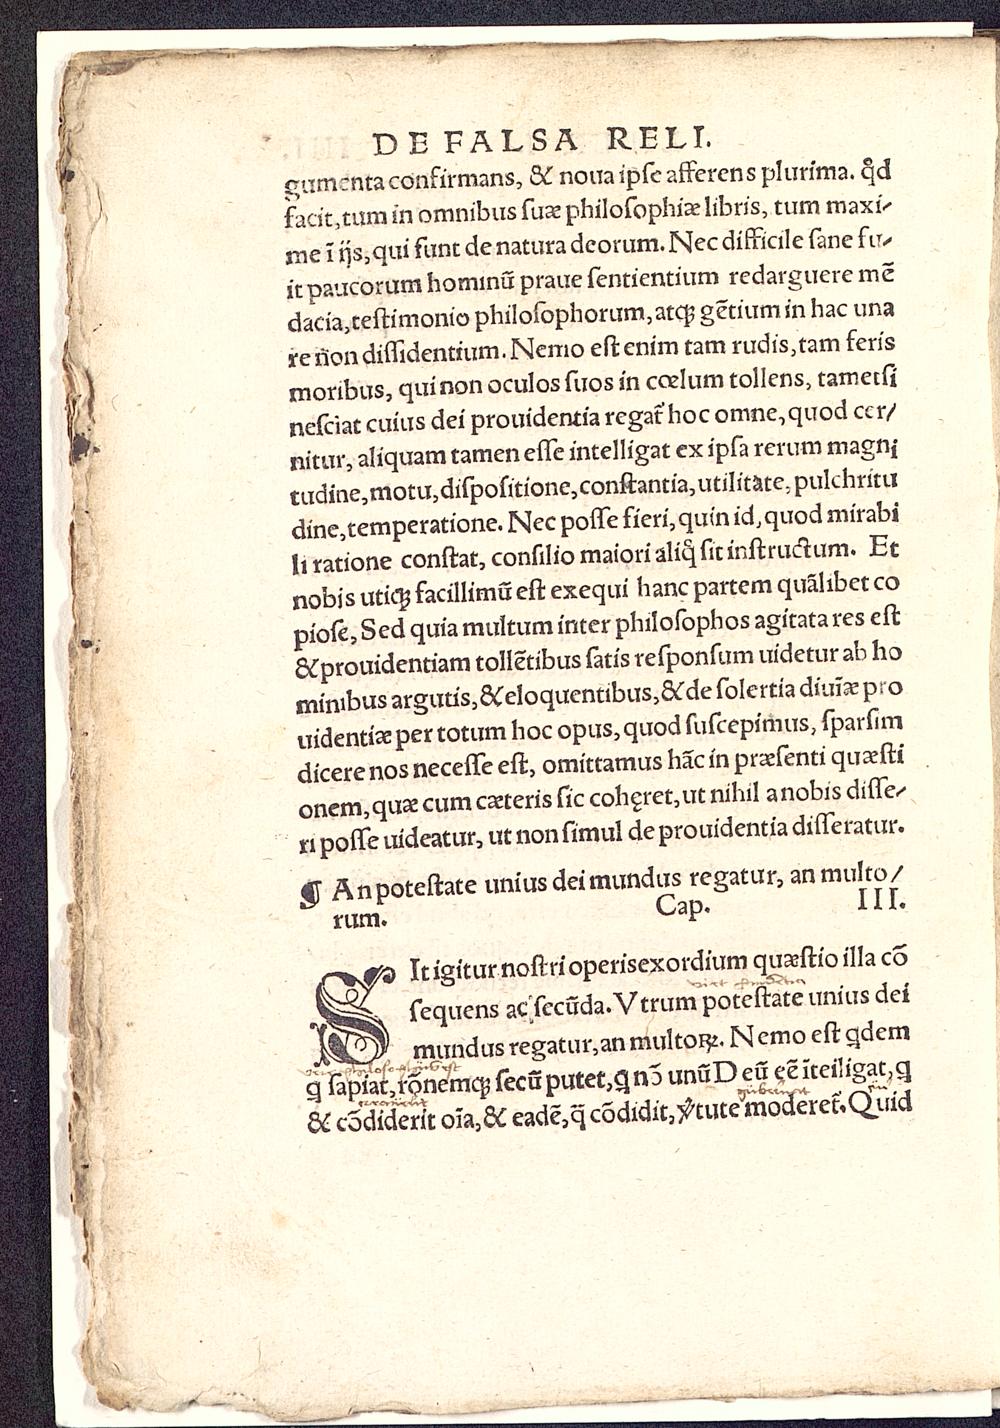 DE FALSA RELI.
gumenta confirmans, & noua ipſe afferens plurima. qd̉
facit, tum in omnibus ſuæ philoſophiæ libris, tum maxi-
me ĩ ijs, qui ſunt de natura deorum. Nec difficile ſane fu-
it paucorum hominũ praue ſentientium redarguere mẽ
dacia, teſtimonio philoſophorum, atqꝫ gẽtium in hac una
re non diſſidentium. Nemo eſt enim tam rudis, tam feris
moribus, qui non oculos ſuos in cœlum tollens, tametſi
neſciat cuius dei prouidentia regat᷑ hoc omne, quod cer/
nitur, aliquam tamen eſſe intelligat ex ipſa rerum magni
tudine, motu, diſpoſitione, conſtantia, utilitate, pulchritu
dine, temperatione. Nec poſſe fieri, quin id, quod mirabi
li ratione conſtat, conſilio maiori aliq̉ ſit inſtructum. Et
nobis utiqꝫ facillimũ eſt exequi hanc partem quãlibet co
pioſe, Sed quia multum inter philoſophos agitata res eſt
& prouidentiam tollẽtibus ſatis reſponſum uidetur ab ho
minibus argutis, & eloquentibus, & de ſolertia diuĩæ pro
uidentiæ per totum hoc opus, quod ſuſcepimus, ſparſim
dicere nos neceſſe eſt, omittamus hãc in præſenti quæſti
onem, quæ cum cæteris ſic cohęret, ut nihil a nobis diſſe-
ri poſſe uideatur, ut non ſimul de prouidentia diſſeratur.
¶ An poteſtate unius dei mundus regatur, an multo/
rum. Cap. III.
SIt igitur noſtri operis exordium quæſtio illa cõ
ſequens ac ſecũda. Vtrum poteſtate unius dei
mundus regatur, an multoꝝ. Nemo eſt qdem
ꝗ ſapiat, rõnemqꝫ ſecũ putet, ꝗ nõ unũ Deũ eẽ ĩtelligat, ꝗ
& cõdiderit oĩa, & eadẽ, q̃ cõdidit, ỹtute moderet᷑. Quid